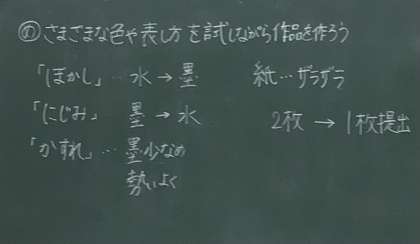 め さまざまな色や表し方を試しながら作品を作ろう
「ぼかし」… 水 → 墨
「にじみ」… 墨 → 水
「かすれ」… 墨少なめ
勢いよく
紙…ザラザラ
2枚 → 1枚提出